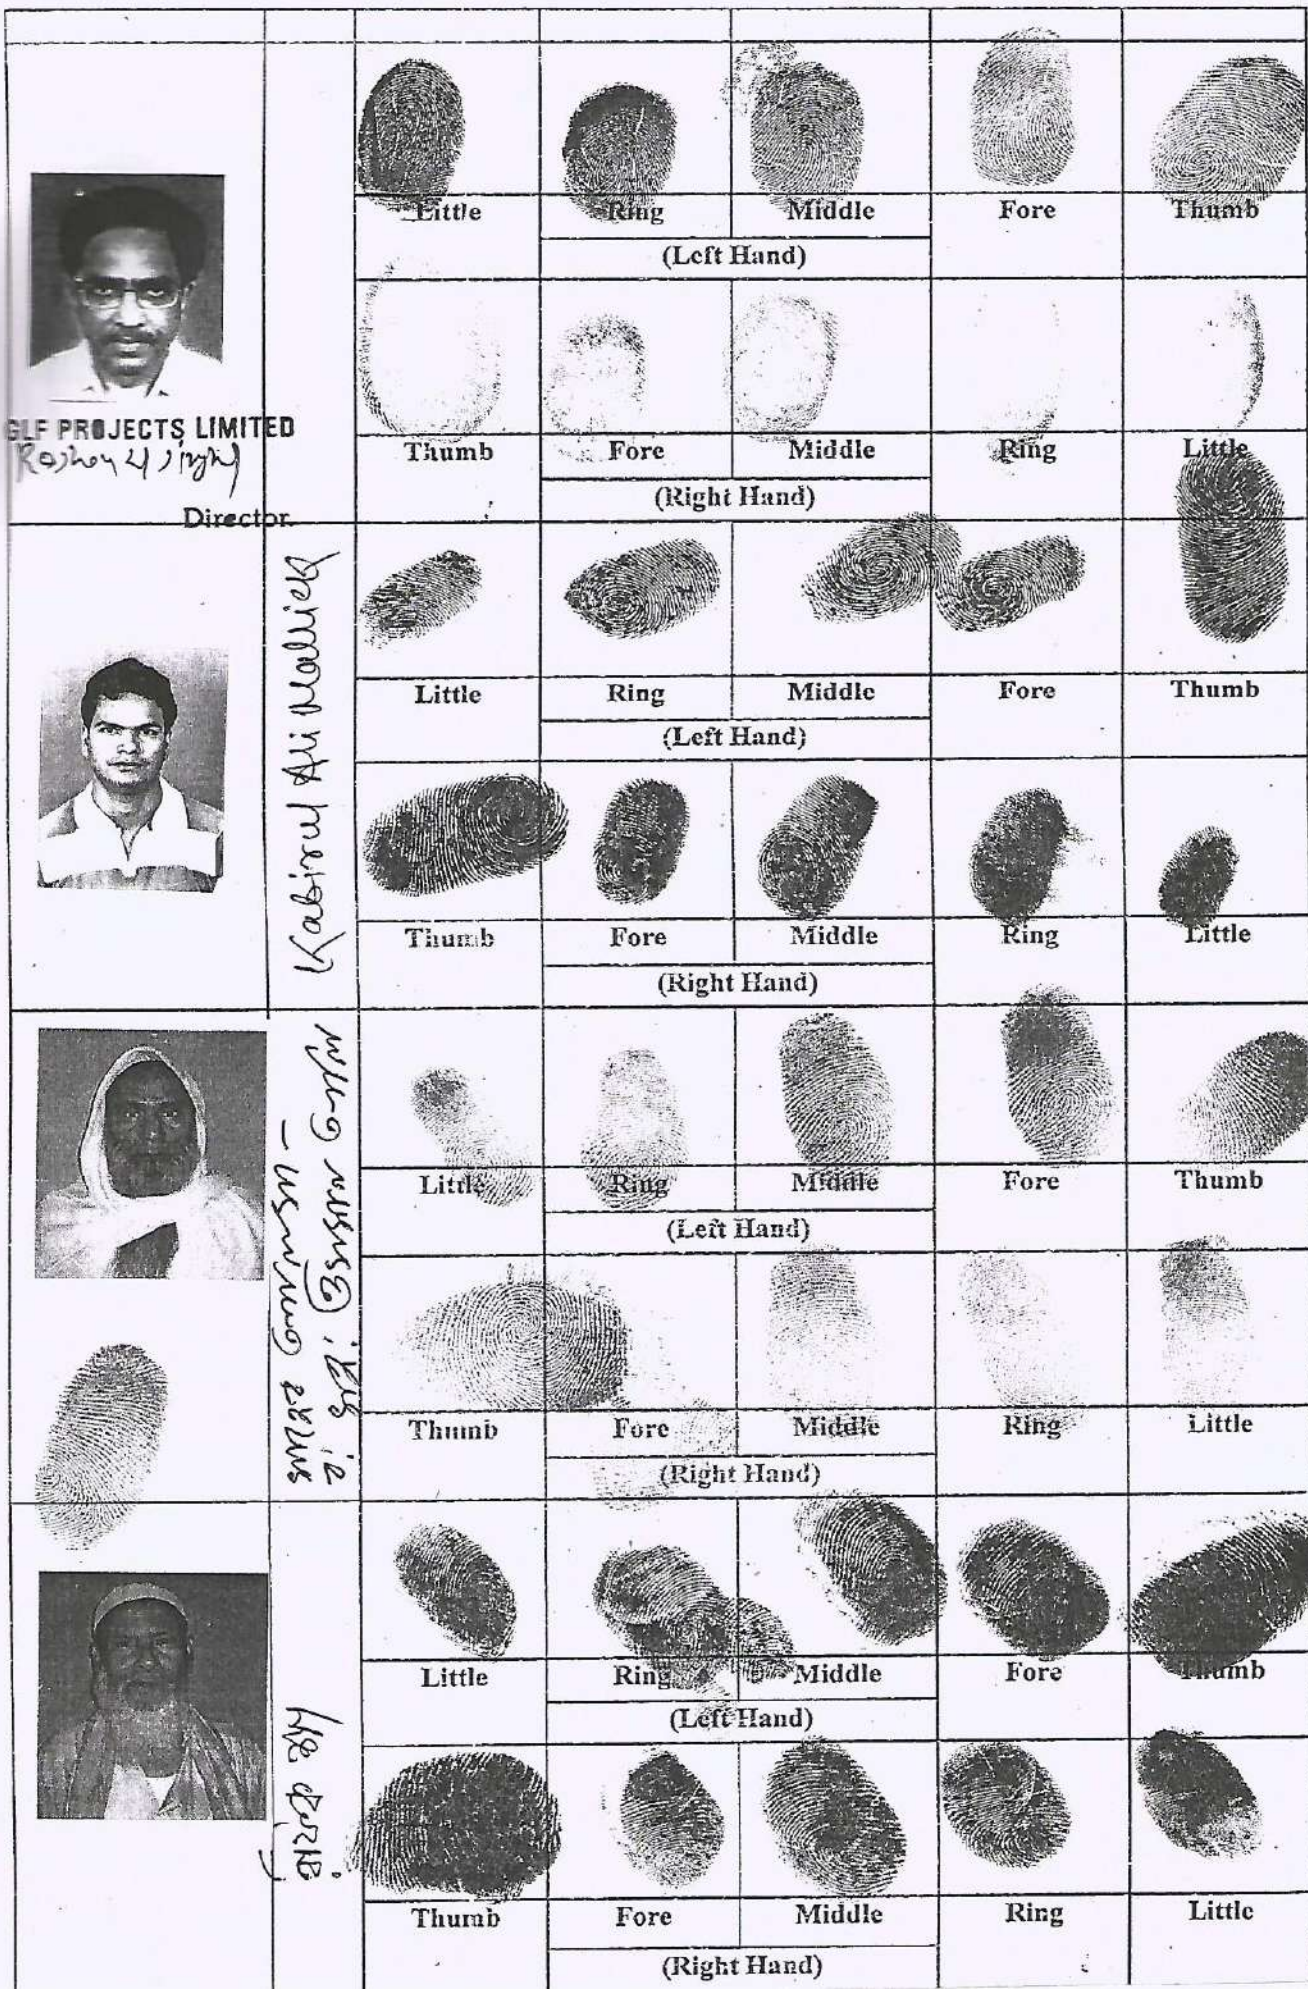 Little Ring Middle Fore Thumb
(Left Hand)
GLF PROJECTS LIMITED
Thumb Fore Middle Ring Little
(Right Hand)
Director
Kabirul Ali Mallick
Little Ring Middle Fore Thumb
(Left Hand)
Thumb Fore Middle Ring Little
(Right Hand)
Little Ring Middle Fore Thumb
(Left Hand)
Thumb Fore Middle Ring Little
(Right Hand)
Little Ring Middle Fore Thumb
(Left Hand)
Thumb Fore Middle Ring Little
(Right Hand)